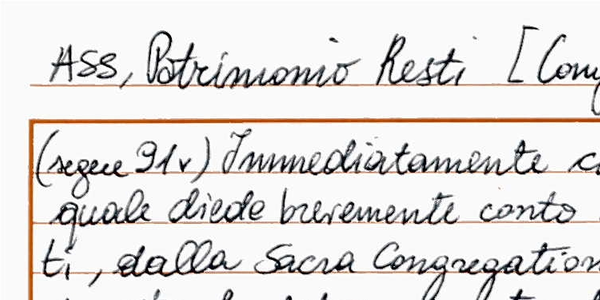 ASS, Patrimonio Resti [Cong
(segue 91v) Immediatamente c
quale diede brevemente conto
ti, dalla Sacra Congregation